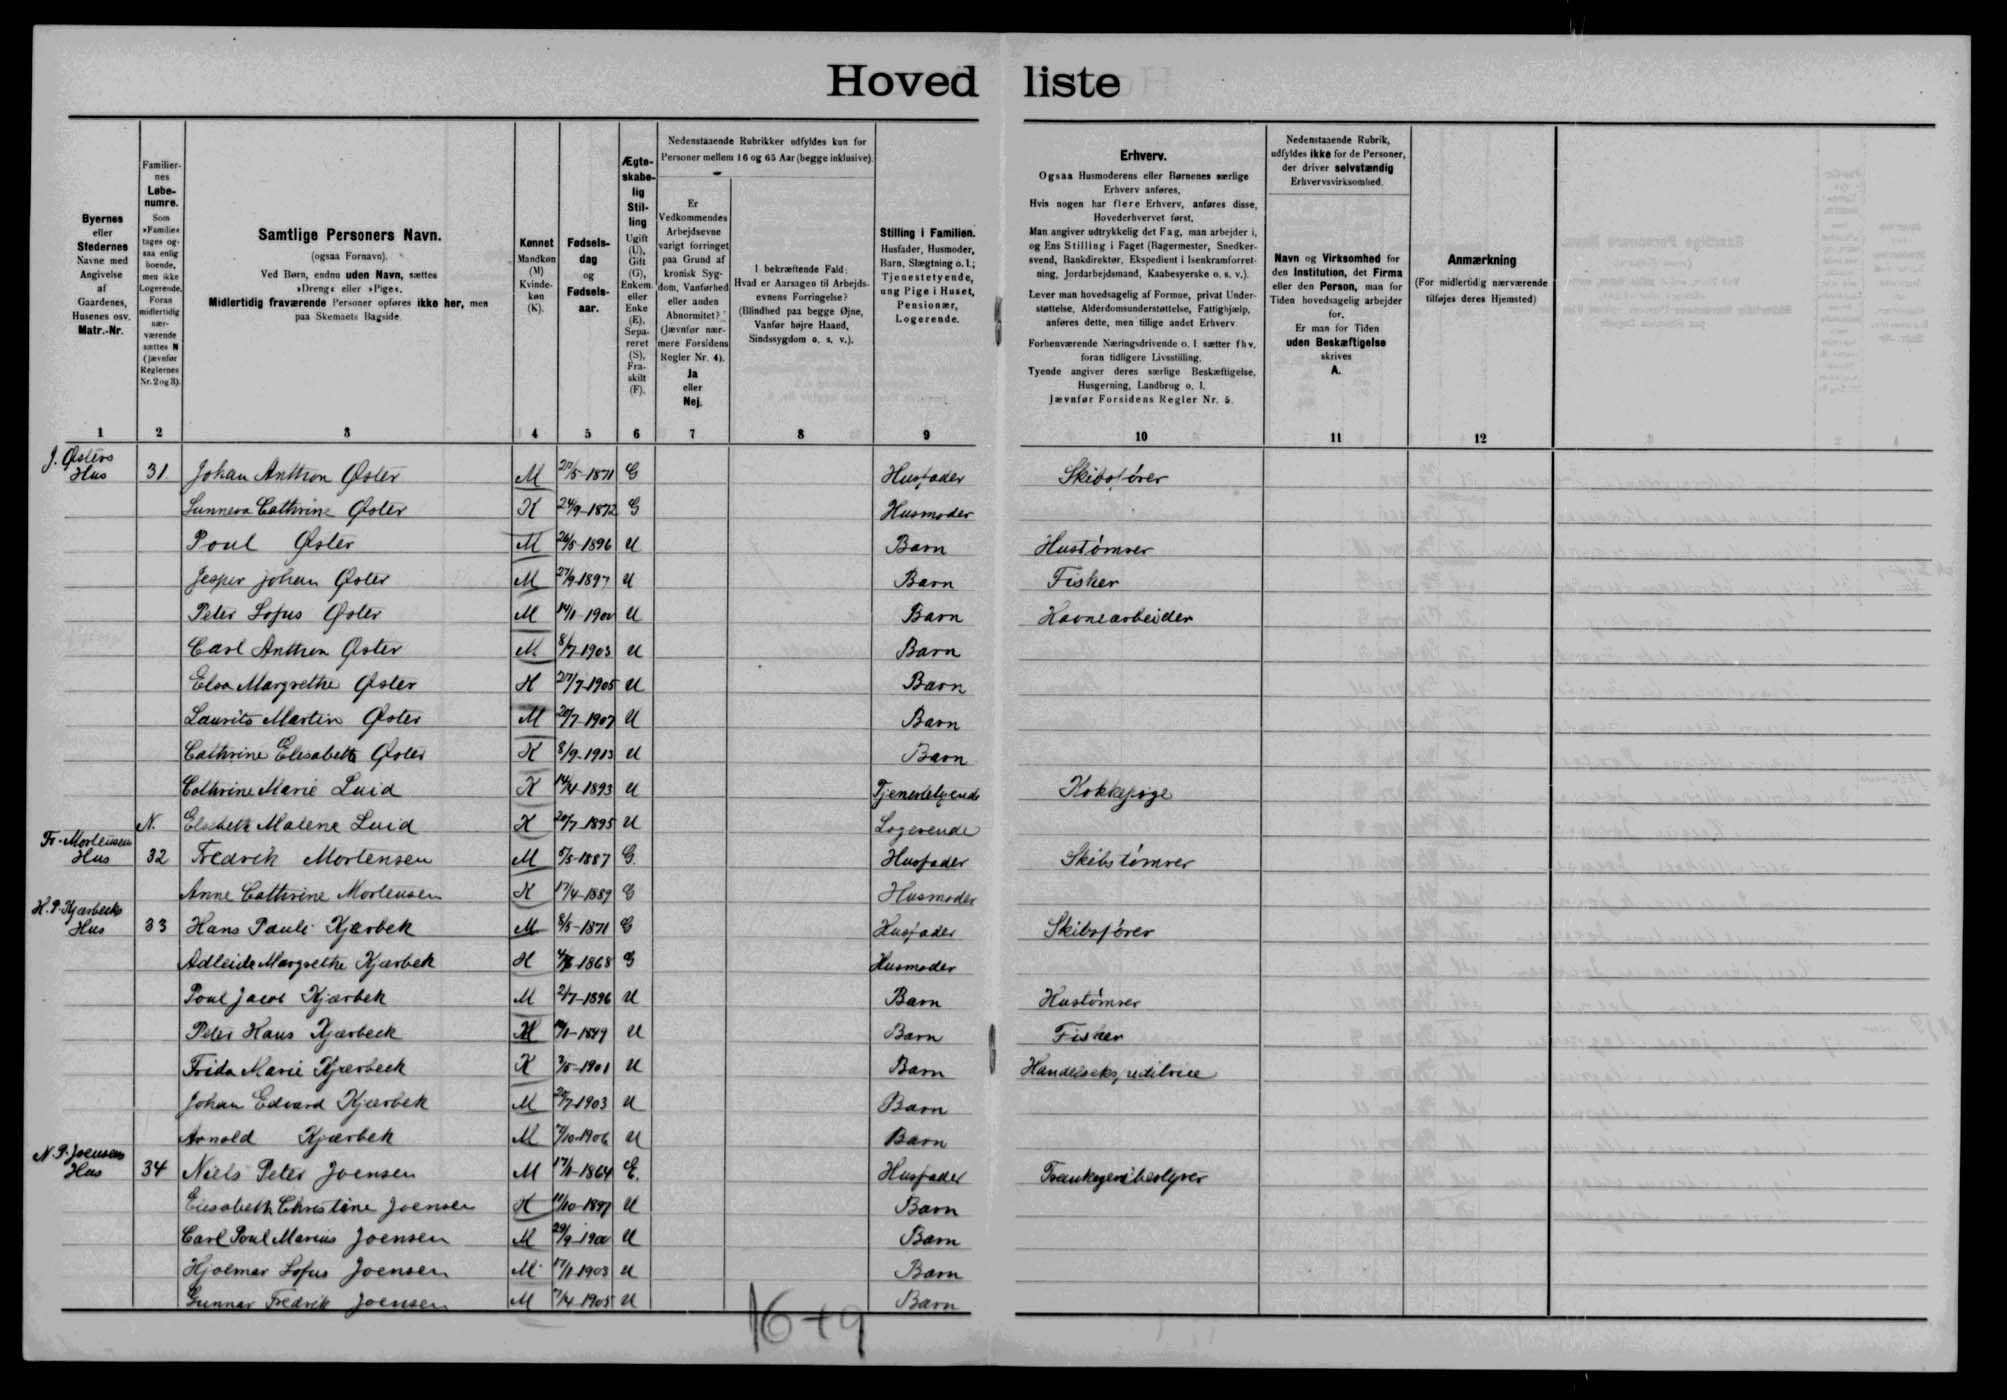 Hoved liste
Byernes
eller
Stedernes
Navne med
Angivelse
af
Gaardenes,
Husenes osv.
Matr.-Nr.
Familier-
nes
Løbe-
numre.
Som
»Familie«
tages og-
saa enlig
boende,
men ikke
Logerende.
Foran
midlertidig
nær-
værende
sættes N
(jævnfør
Reglernes
Nr. 2 og 3).
Samtlige Personers Navn.
(ogsaa Fornavn).
Ved Børn, endnu uden Navn, sættes
»Dreng« eller »Pige«.
Midlertidig fraværende Personer opføres ikke her, men
paa Skemaets Bagside.
Kønnet
Mandkøn
(M)
Kvinde-
køn
(K).
Fødsels-
dag
og
Fødsels-
aar.
Ægte-
skabe-
lig
Stil-
ling
Ugift
(U),
Gift
(G),
Enkem.
eller
Enke
(E),
Sepa-
reret
(S),
Fra-
skilt
(F).
Nedenstaaende Rubrikker udfyldes kun for
Personer mellem 16 og 65 Aar (begge inklusive).
Er
Vedkommendes
Arbejdsevne
varigt forringet
paa Grund af
kronisk Syg-
dom, Vanførhed
eller anden
Abnormitet?
(Jævnfør nær-
mere Forsidens
Regler Nr. 4).
Ja
eller
Nej.
I bekræftende Fald:
Hvad er Aarsagen til Arbejds-
evnens Forringelse?
(Blindhed paa begge Øjne,
Vanfør højre Haand,
Sindssygdom o. s. v.).
Stilling i Familien.
Husfader, Husmoder,
Barn, Slægtning o. l.;
Tjenestetyende,
ung Pige i Huset,
Pensionær,
Logerende.
Erhverv.
Ogsaa Husmoderens eller Børnenes særlige
Erhverv anføres,
Hvis nogen har flere Erhverv, anføres disse,
Hovederhvervet først.
Man angiver udtrykkelig det Fag, man arbejder i,
og Ens Stilling i Faget (Bagermester, Snedker-
svend, Bankdirektør, Ekspedient i Isenkramforret-
ning, Jordarbejdsmand, Kaabesyerske o. s. v.).
Lever man hovedsagelig af Formue, privat Under-
støttelse, Alderdomsunderstøttelse, Fattighjælp,
anføres dette, men tillige andet Erhverv
Forhenværende Næringsdrivende o. l. sætter fhv.
foran tidligere Livsstilling.
Tyende angiver deres særlige Beskæftigelse,
Husgerning, Landbrug o. l.
Jævnfør Forsidens Regler Nr. 5.
Nedenstaaende Rubrik,
udfyldes ikke for de Personer,
der driver selvstændig
Erhvervsvirksomhed.
Navn og Virksomhed for
den Institution, det Firma
eller den Person, man for
Tiden hovedsagelig arbejder
for.
Er man for Tiden
uden Beskæftigelse
skrives
A.
Anmærkning
(For midlertidig nærværende
tilføjes deres Hjemsted)
1 2 3 4 5 6 7 8 9 10 11 12
J. Østers
Hus 31 Johan Anthon Øster M 27/5-1871 G Husfader Skibsfører
Sunneva Cathrine Øster K 24/9-1872 G Husmoder
Poul Øster M 26/5-1896 U Barn Hustømrer
Jesper Johan Øster M 27/9-1897 U Barn Fisker
Peter Sofus Øster M 14/1-1900 U Barn Havnearbeider
Carl Anthon Øster M 8/7-1903 U Barn
Elsa Margrethe Øster K 27/7-1905 U Barn
Laurits Martin Øster M 20/7-1907 U Barn
Cathrine Elisabeth Øster K 8/9-1913 U Barn
Cathrine Marie Luid K 14/4-1893 U Tjenestetyende Kokkepige
N. Elsebeth Malene Luid K 20/7-1895 U Logerende
Fr. Mortensens
Hus 32 Fredrik Mortensen M 5/5-1887 G. Husfader Skibstømrer
Anne Cathrine Mortensen K 17/4-1889 G Husmoder
H. P. Kjærbecks
Hus 33 Hans Pauli Kjærbek M 8/5-1871 G Husfader Skibsfører
Adleide Margrethe Kjærbek K 1868 G Husmoder
Poul Jacob Kjærbek M 2/7-1896 U Barn Hustømrer
Peter Hans Kjærbeck M U Barn Fisker
Frida Marie Kjærbeck K 1901 U Barn Handelsekspeditrice
Johan Edvard Kjærbek M 20/7-1903 U Barn
Arnold Kjærbek M 7/10-1906 U Barn
N. P. Joensens
Hus 34 Niels Peter Joensen M 17/1-1864 E. Husfader Trankogeribestyrer
Elisabeth Christine Joensen K 11/10-1897 U Barn
Carl Poul Marius Joensen M 29/9-1900 U Barn
Hjalmar Sofus Joensen M 17/1-1903 U Barn
Gunnar Fredrik Joensen M 7/4-1905 U Barn
16+9